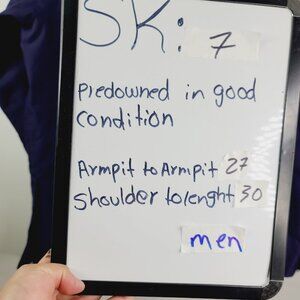 SK: 7
Predowned in good
condition
Armpit to Armpit 27
Shoulder to lenght 30
men